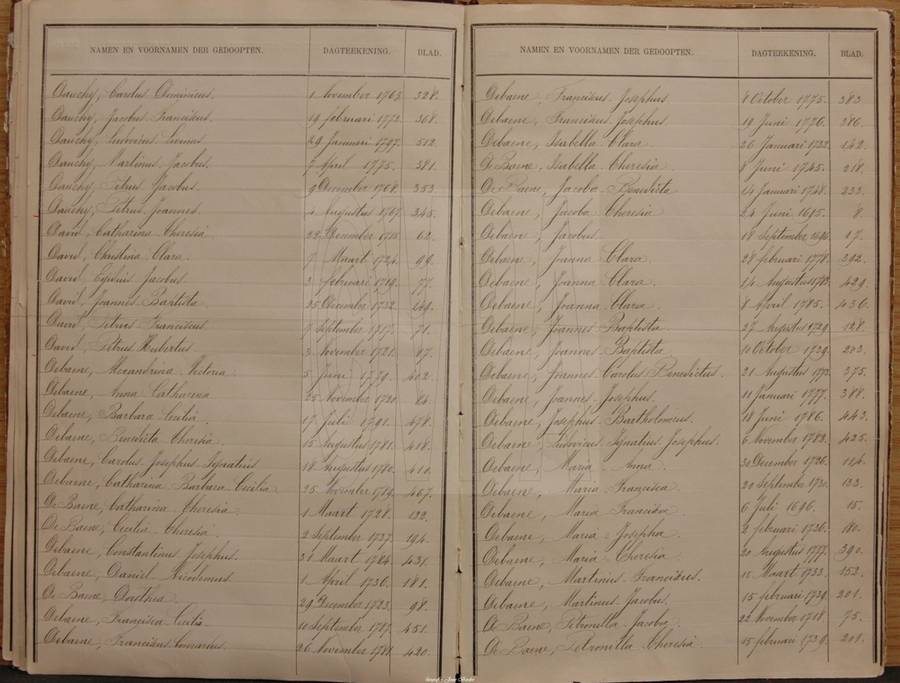 NAMEN EN VOORNAMEN DER GEDOOPTEN. DAGTEEKENING. BLAD.
Dauchy, Carolus Dominicus. 1 November 1765. 328.
Dauchy, Jacobus Franciscus. 19 februari 1772. 368.
Dauchy, Ludovicus 29 Januari 1797. 512.
Dauchy, Martinus Jacobus. 7 April 1775. 381.
Dauchy, Petrus Jacobus. 9 December 1768. 353
Dauchy, Petrus Joannes. Augustus 1767. 345.
David, Catharina Theresia 22 December 1715. 62.
David, Christina Clara. 7 Maart 1724. 99.
David, Jacobus. 3 februari 1719. 77.
David, Joannes Baptista 25 December 1732. 149.
David, Petrus Franciscus. 9 September 1717. 71.
David, Petrus Hubertus 3 November 1721. 87.
Debaene, Alexandrina Victoria. 5 Juni 1779. 402.
Debaene, Anna Catharina 25 November 1720. 84.
Debaene, Barbara Cecilia. 17 Juli 1791. 478.
Debaene, Benedicta Theresia. 15 Augustus 1781. 418.
Debaene, Carolus Josephus Ignatius 18 Augustus 1780. 410.
Debaene, Catharina Barbara Cecilia 25 November 467.
De Baene, Catharina Theresia. 1 Maart 1728. 122.
De Baene, Cecilia Theresia. 2 September 1737. 194.
Debaene, Constantinus Josephus. 31 Maart 1784. 431.
Debaene, Daniel Nicodemus 1 April 1736. 181.
De Baene Dorothea 29 December 1723. 98.
Debaene, Francisca Cecilia 10 September 1787. 451.
Debaene, Franciscus 26 November 1781. 420.
NAMEN EN VOORNAMEN DER GEDOOPTEN. DAGTEEKENING. BLAD.
Debaene, Franciscus Josephus 8 October 1775. 383
Debaene, Franciscus Josephus. 19 Juni 1776. 386.
Debaene, Isabella Clara. 26 Januari 1732. 142.
De Baene, Isabella Theresia. 8 Juni 1745. 218.
De Baene, Jacoba Benedicta 14 Januari 1748. 233.
Debaene, Jacoba Theresia 24 Juni 1695. 8.
Debaene, Jacobus. 18 September 1696. 17.
Debaene, Joanna Clara. 28 februari 1778. 392.
Debaene, Joanna Clara. 14 Augustus 1783. 429.
Debaene, Joanna Clara. 8 April 1785. 436.
Debaene, Joannes Baptista 27 Augustus 1729. 128.
Debaene, Joannes Baptista. 10 October 1739. 203.
Debaene, Joannes Carolus Benedictus. 21 Augustus 1773. 375.
Debaene, Joannes Josephus. 11 Januari 1777. 388.
Debaene, Josephus Bartholomeus. 18 Juni 1786. 443.
Debaene, Ludovicus Ignatius Josephus. 6 November 1782. 425.
Debaene, Maria Anna. 30 December 1726. 114.
Debaene, Maria Francisca. 20 September 133.
Debaene, Maria Francisca 6 Juli 1696. 15.
Debaene, Maria Josepha 2 februari 1736. 180.
Debaene, Maria Theresia 20 Augustus 1777. 390.
Debaene, Martinus Franciscus. 15 Maart 1733. 153.
Debaene, Martinus Jacobus. 15 februari 1739. 201.
De Baene, Petronilla Jacoba. 22 November 1718. 75.
De Baene, Petronilla Theresia. 15 februari 1739. 201.